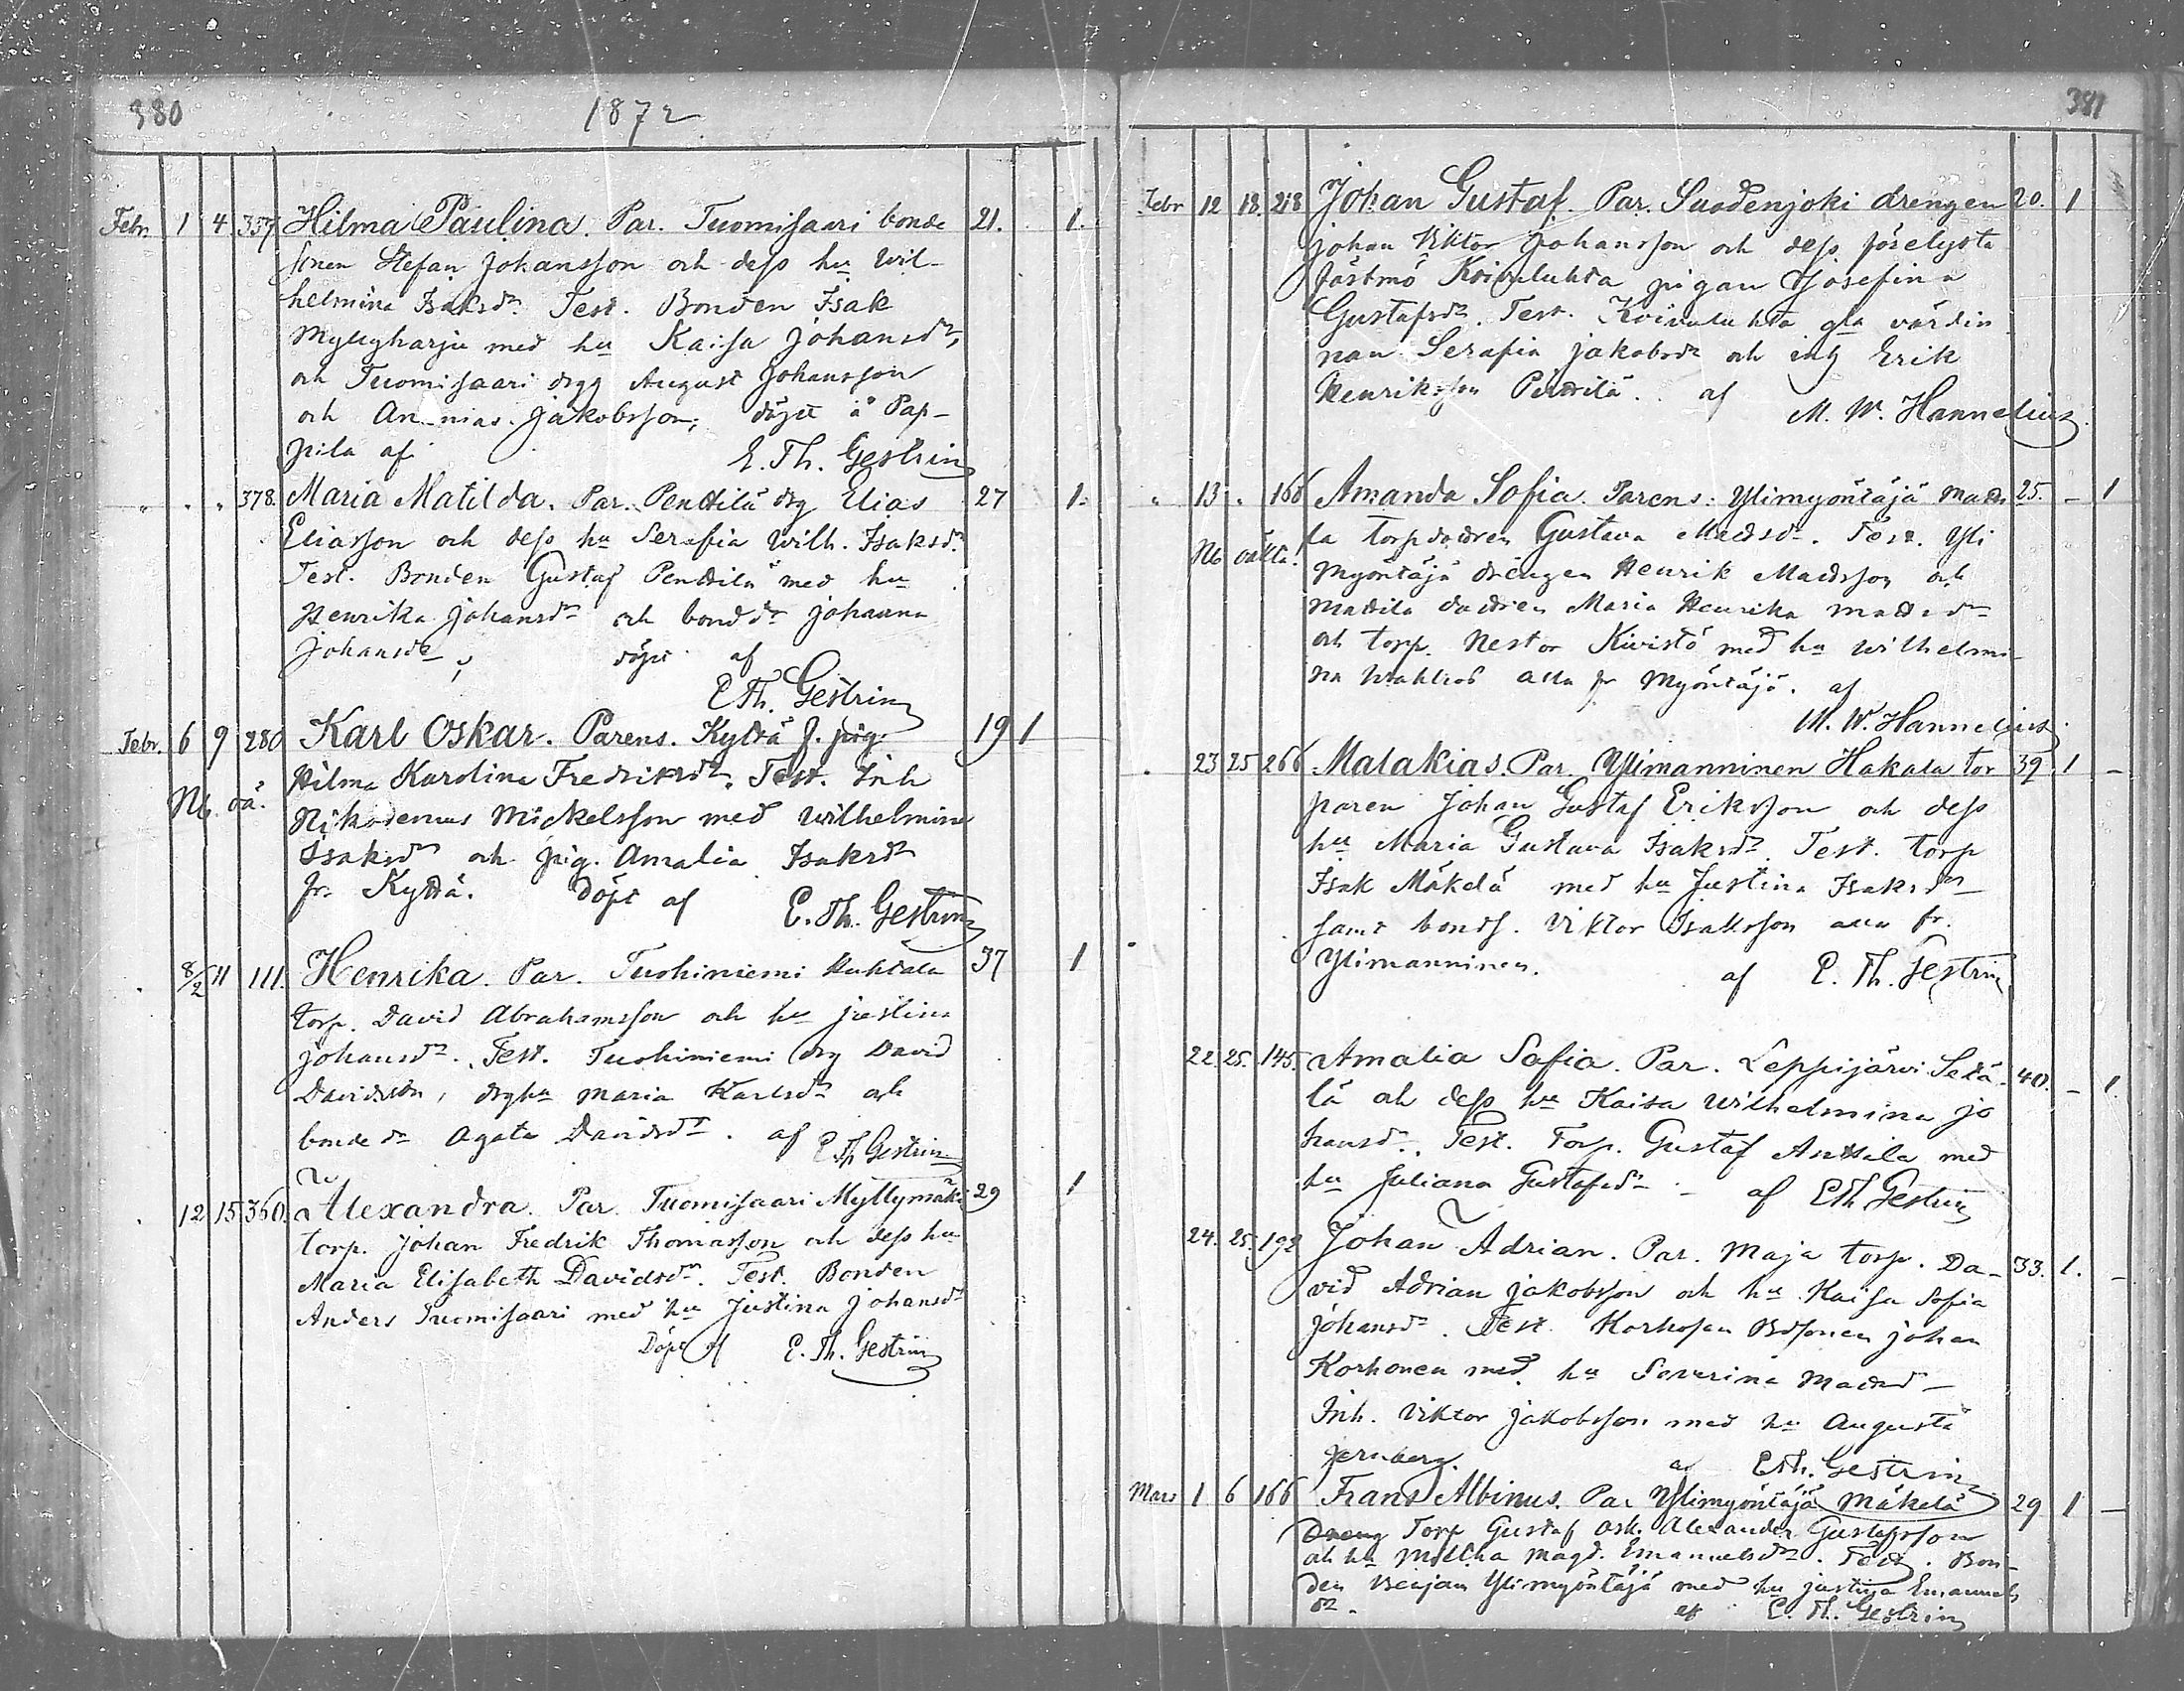 380
1872
Febr. 1 4 357 Hilma Paulina. Par. Tuomisaari bonde 21. 1.
sonen Stefan Johansson och dess hu Wil-
helmina Isaksdr. Test. Bonden Isak
Myllyharju med hu Kaisa Johansdr,
och Tuomisaari drgg August Johansson
och Ananias Jakobsson, döpt å Pap-
pila af E. Th. Gestrin
" " " 378. Maria Matilda. Par. Penttilä drg Elias 27 1.
Eliasson och dess hu Serafia Wilh. Isaksdr.
Test. Bonden Gustaf Penttilä med hu
Henrika Johansdr och bonddr Johanna
Johansdr, döpt af
E. Th. Gestrin
Febr. 6 9 280 Karl Oskar. Parens. Kyttä f. pig. 19 1
Nb. oä. Hilma Karolina Fredriksdr. Test. Inh
Nikodemus Mickelsson med Wilhelmina
Isaksdr och pig. Amalia Isaksdr
fr. Kyttä. Döpt af E. Th. Gestrin
" 8/2 11 111. Henrika. Par. Tuohiniemi Huhtala 37 1
torp. David Abrahamsson och hu Justina
Johansdr. Test. Tuohiniemi drg David
Davidsson, drghu Maria Karlsdr och
bondedr Agata Davidsdr. af E Th Gestrin
" 12 15 360. Alexandra. Par. Tuomisaari Myllymäki 29 1
torp. Johan Fredrik Thomasson och dess hu
Maria Elisabeth Davidsdr. Test. Bonden
Anders Tuomisaari med hu Justina Johansdr
Döpt af E. Th. Gestrin
381
Febr 12 18. 218 Johan Gustaf. Par. Suodenjoki drengen 20. 1
Johan Viktor Johansson och dess förelysta
fästmö Koivuluhta pigan Josefina
Gustafsdr. Test. Koivuluhta gla värdin
nan Serafia Jakobsdr och inh Erik
Henriksson Penttilä. af
M. W. Hannelius.
" 13 " 166 Amanda Sofia. Parens: Ylimyöntäjä Matti 25. – 1
Nb oäkta! la torpdottren Gustava Mattsdr. Test. Yli
myöntäjä drängen Henrik Mattsson och
Mattila dottren Maria Henrika Mattsdr
och torp. Nestor Kivistö med hu Wilhelmi-
na Wahlros alla fr Myöntäjä. af
M. W. Hannelius.
" 23 25 266 Malakias. Par. Ylimanninen Hakala tor 39. 1 –
paren Johan Gustaf Eriksson och dess
hu Maria Gustava Isaksdr. Test. torp
Isak Mäkelä med hu Justina Isaksdr
samt bonds. Viktor Isaksson alla fr.
Ylimanninen. af E. Th. Gestrin
22. 25. 145. Amalia Sofia. Par. Leppijärvi 40. – 1.
lä och dess hu Kaisa Wilhelmina Jo
hansdr. Test. Torp. Gustaf Anttila med
hu Juliana Gustafsdr – af E Th Gestrin
24. 25. 192 Johan Adrian. Par. Maja torp. Da- 33. 1. –
vid Adrian Jakobsson och hu Kaisa Sofia
Johansdr. Test. Korhosen Bdsonen Johan
Korhonen med hu Severina Mattsd –
Inh. Viktor Jakobsson med hu Augusta
Jernberg. af E Th. Gestrin
Mars 1 6 166 Frans Albinus. Par. Ylimyöntäjä Mäkelä 29 1 –
Dreng Torp Gustaf Osk. Alexander Gustafsson
och hu Milka Magd. Emanuelsdr. Test. Bon-
den Benjam Ylimyöntäjä med hu Justina Emanuels
dr. af E. Th. Gestrin